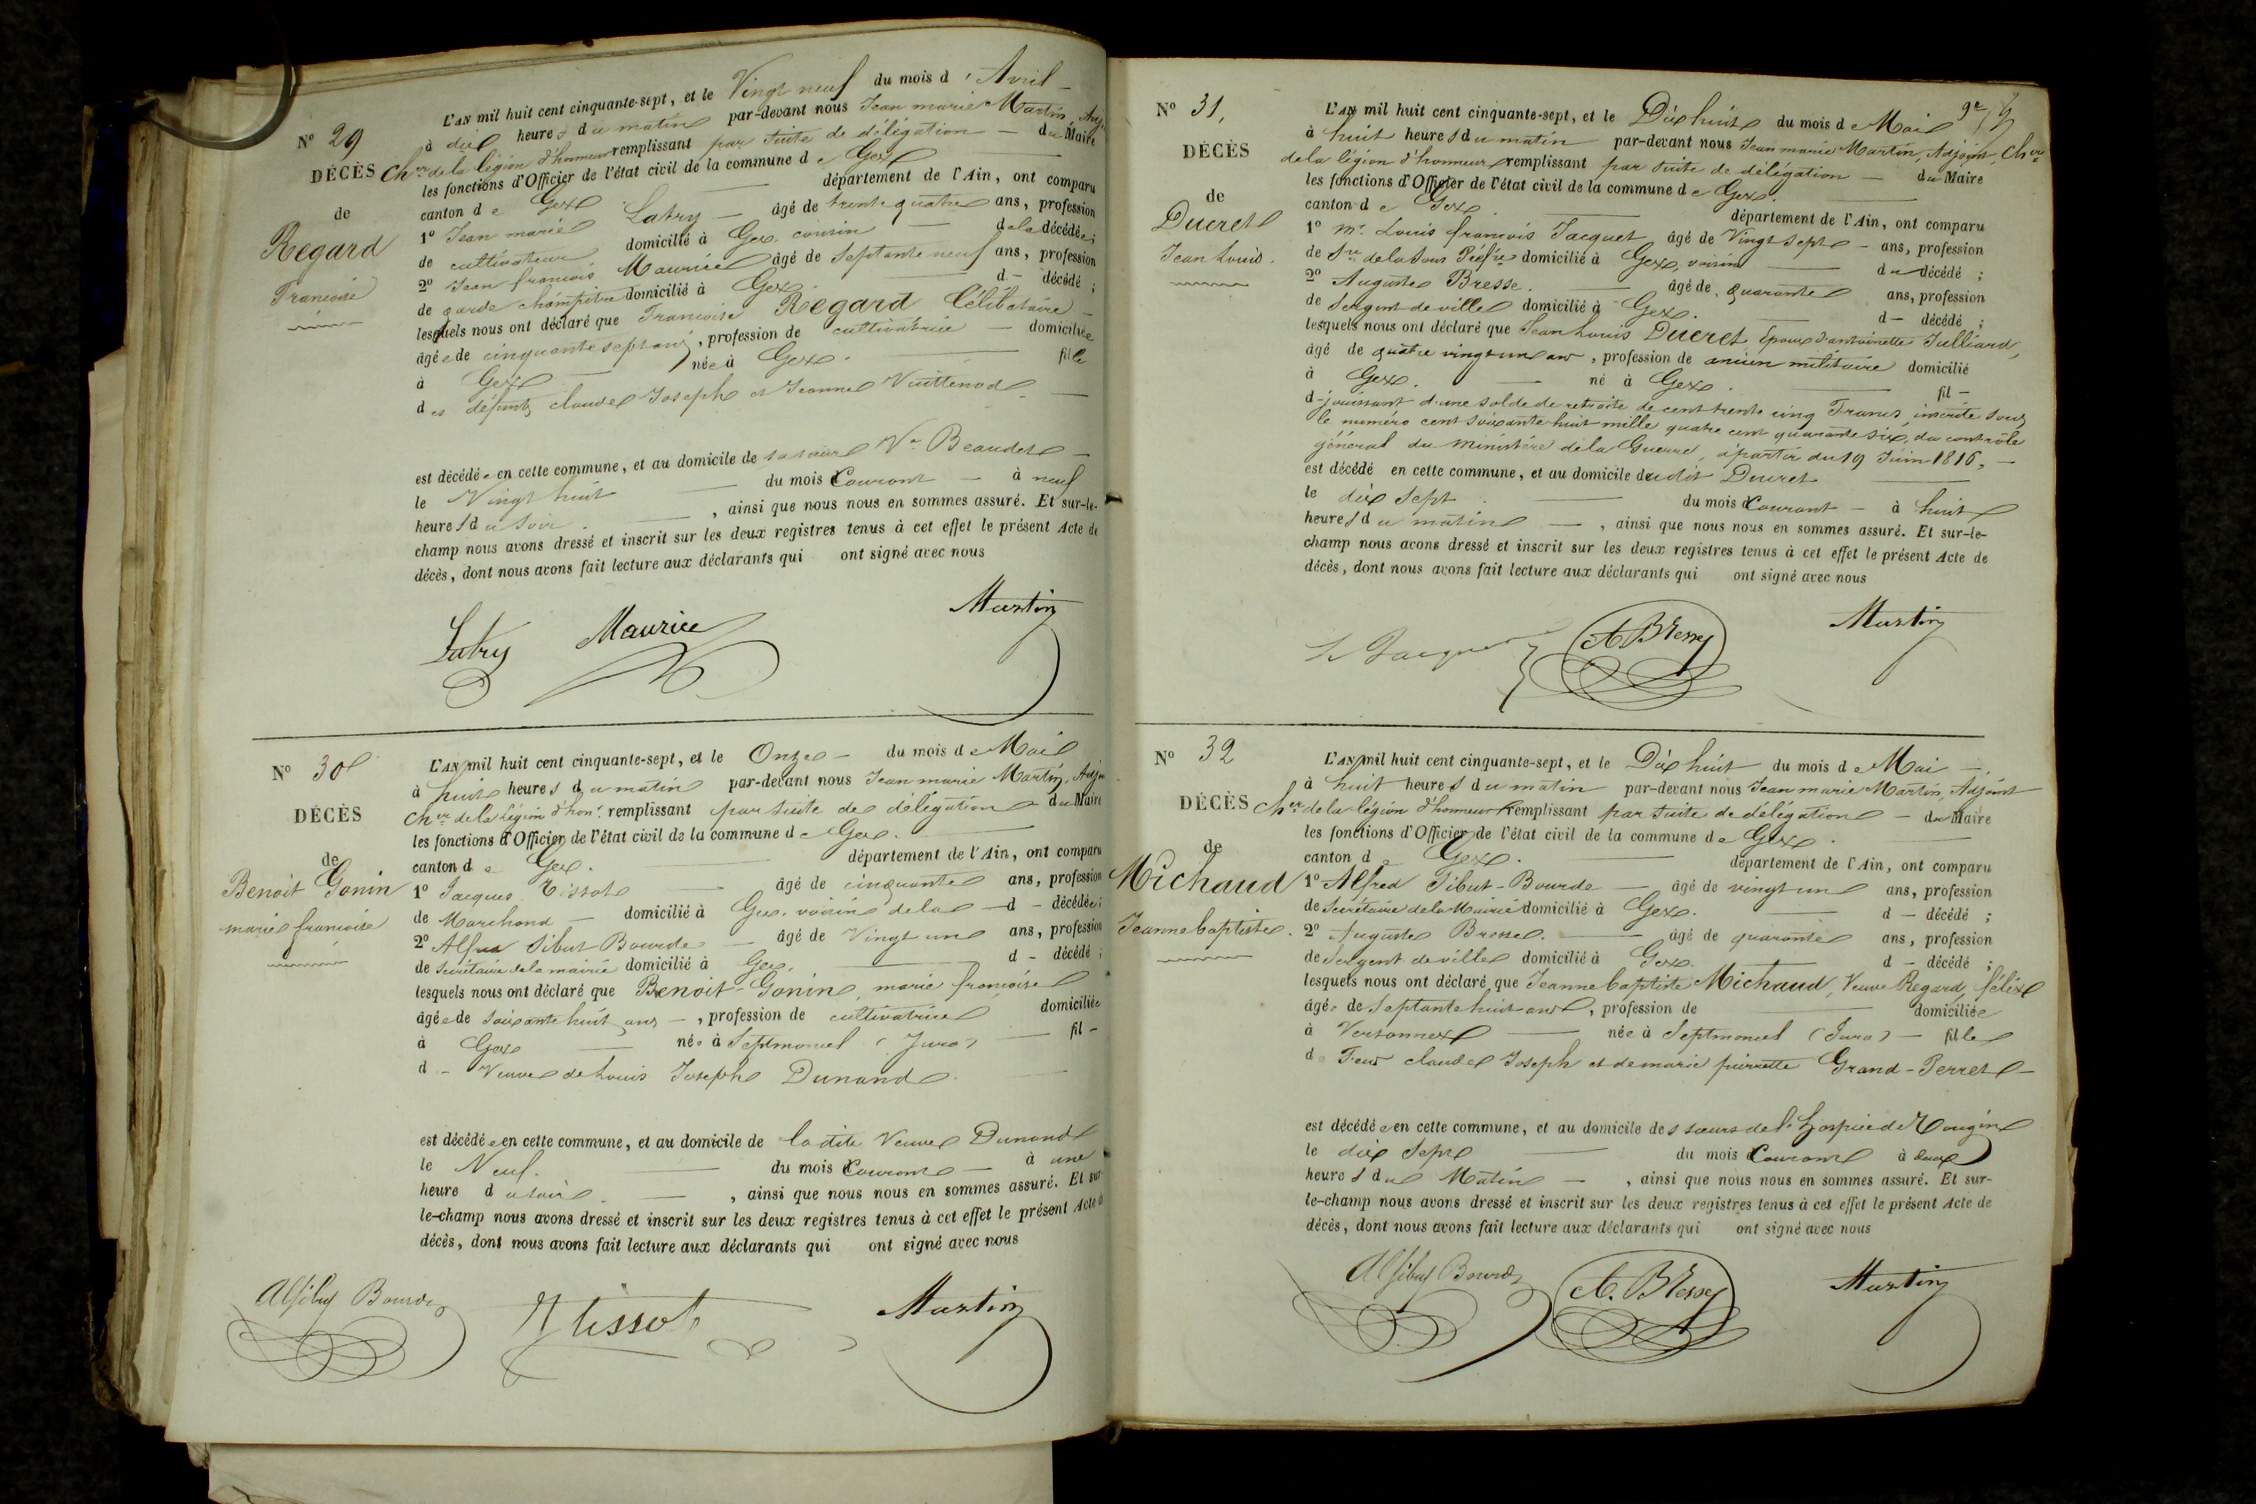 N° 29
DÉCÈS
de
Regard
Francoise
L'AN mil huit cent cinquante-sept, et le Vingt neuf du mois d'Avril
à dix heures du matin par-devant nous Jean marie Martin, Adj.
Cher de la légion d'honneur remplissant par suite de délégation — du Maire
les fonctions d'Officier de l'état civil de la commune de Gex
canton de Gex département de l'Ain, ont comparu
1° Jean marie Latry — âgé de trente quatre ans, profession
de cultivateur domicilié à Gex. cousin — de la décédée;
2° Jean francois Maurice âgé de Septante neuf ans, profession
de garde champêtre domicilié à Gex. d — décédé;
lesquels nous ont déclaré que Francoise Regard Célibataire —
âgée de cinquante sept ans, profession de cultivatrice — domiciliée
à Gex — née à Gex. — fille
des défunts claude Joseph et Jeanne Vuittenod —
est décédée en cette commune, et au domicile de sa soeur Ve Beaudet —
le Vingt huit — du mois Courant — à neuf
heures du soir. — , ainsi que nous nous en sommes assuré. Et sur-le-
champ nous avons dressé et inscrit sur les deux registres tenus à cet effet le présent Acte de
décès, dont nous avons fait lecture aux déclarants qui ont signé avec nous
Latry Maurice Martin
N° 30
DÉCÈS
de
Benoit Gonin
marie francoise
L'AN mil huit cent cinquante-sept, et le Onze — du mois de Mai
à huit heures du matin par-devant nous Jean marie Martin, Adj.
Cher de la légion d'honr. remplissant par suite de délégation — du Maire
les fonctions d'Officier de l'état civil de la commune de Gex. —
canton de Gex. — département de l'Ain, ont comparu
1° Jacques Tissot — âgé de cinquante ans, profession
de Marchand — domicilié à Gex. voisin de la — d — décédée;
2° Alfred Sibut Bourde — âgé de Vingt un ans, profession
de Secrétaire de la mairie domicilié à Gex. — d — décédé;
lesquels nous ont déclaré que Benoit-Gonin, marie francoise
âgée de soixante huit ans —, profession de cultivatrice domiciliée
à Gex — née à Septmoncel (Jura) — fil —
d — Veuve de Louis Joseph Dunand. —
est décédée en cette commune, et au domicile de la dite Veuve Dunand
le Neuf. — du mois Courant — à une
heure du soir. — , ainsi que nous nous en sommes assuré. Et sur-
le-champ nous avons dressé et inscrit sur les deux registres tenus à cet effet le présent Acte de
décès, dont nous avons fait lecture aux déclarants qui ont signé avec nous
Al Sibut Bourde J Tissot Martin
N° 31,
DÉCÈS
de
Ducret
Jean Louis.
L'AN mil huit cent cinquante-sept, et le Dix huit du mois de Mai
à huit heures du matin par-devant nous Jean marie Martin, Adjoint, Cher
de la légion d'honneur remplissant par suite de délégation — du Maire
les fonctions d'Officier de l'état civil de la commune de Gex. —
canton de Gex. — département de l'Ain, ont comparu
1° Mr. Louis francois Jacquet âgé de Vingt sept — ans, profession
de Sre de la Sous Préfre domicilié à Gex, voisin — du décédé;
2° Auguste Bresse. — âgé de quarante ans, profession
de Sergent de ville domicilié à Gex. — d — décédé;
lesquels nous ont déclaré que Jean Louis Ducret Epoux d'antoinette Julliard,
âgé de quatre vingt un ans, profession de ancien militaire domicilié
à Gex. — né à Gex. — fil —
d — jouissant d'une solde de retraite de cent trente cinq Francs, inscrite sous
le numéro cent soixante huit mille quatre cent quarante six, du contrôle
général du Ministère de la Guerre, à partir du 19 Juin 1816, —
est décédé en cette commune, et au domicile dudit Ducret —
le dix sept. — du mois Courant — à huit
heures du matin — , ainsi que nous nous en sommes assuré. Et sur-le-
champ nous avons dressé et inscrit sur les deux registres tenus à cet effet le présent Acte de
décès, dont nous avons fait lecture aux déclarants qui ont signé avec nous
L Jacquet A Bresse Martin
N° 32
DÉCÈS
de
Michaud
Jeanne baptiste.
L'AN mil huit cent cinquante-sept, et le Dix huit du mois de Mai —
à huit heures du matin par-devant nous Jean marie Martin, Adjoint
Cher de la légion d'honneur remplissant par suite de délégation — du Maire
les fonctions d'Officier de l'état civil de la commune de Gex. —
canton de Gex. — département de l'Ain, ont comparu
1° Alfred Sibut-Bourde — âgé de vingt un ans, profession
de Secrétaire de la Mairie domicilié à Gex. — d — décédé;
2° Auguste Bresse. — âgé de quarante ans, profession
de Sergent de ville domicilié à Gex. d — décédé;
lesquels nous ont déclaré que Jeanne baptiste Michaud, Veuve Regard, félix
âgée de Septante huit ans, profession de — domiciliée
à Versonnex — née à Septmoncel (Jura) — fille
de Feus claude Joseph et de marie pierrette Grand-Perret —
est décédée en cette commune, et au domicile des soeurs de l'hospice de Tougin
le dix Sept — du mois Courant à deux
heures du Matin — , ainsi que nous nous en sommes assuré. Et sur-
le-champ nous avons dressé et inscrit sur les deux registres tenus à cet effet le présent Acte de
décès, dont nous avons fait lecture aux déclarants qui ont signé avec nous
Al Sibut Bourde A. Bresse Martin